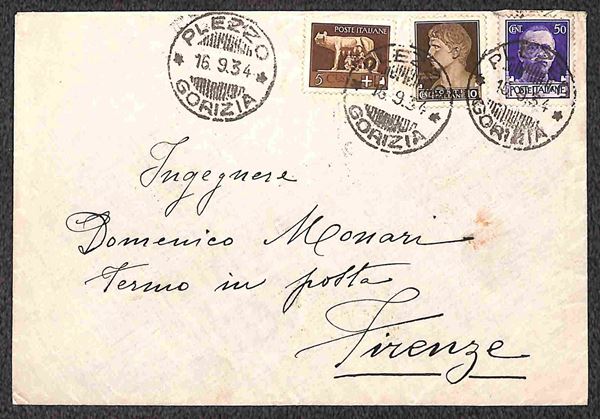 PLEZZO
16.9.34
GORIZIA
POSTE ITALIANE
5 CENT
PLEZZO
16.9.34
GORIZIA
10
CENT. 50
POSTE ITALIANE
PLEZZO
16.9.34
GORIZIA
Ingegnere
Domenico Monari
Fermo in posta
Firenze